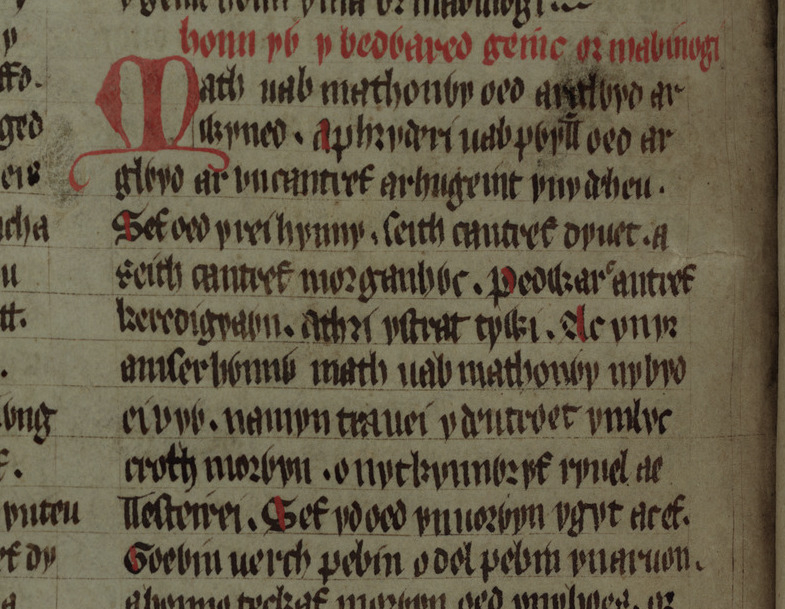 y
ffd.
ged
cha
u
tt.
.
ỽng
f.
ynteu
ef dy
a
y geinc honn yma or mabinogi
honn yỽ y bedỽared geinc or mabinogi
Math uab mathonỽy oed arglỽyd ar
wyned. Aphryderi uab pỽyll oed ar
glỽyd ar vncantref arhugeint ynydeheu.
Sef oed yrei hynny. seith cantref dyuet. a
seith cantref morganhỽc. Pedwar cantref
keredigyaỽn. Athri ystrat tywi. Ac ynyr
amser hỽnnỽ math uab mathonỽy nybyd
ei vyỽ. namyn tra uei ydeutroet ymlyc
croth morỽyn. onyt kynnỽryf ryuel ae
llesteirei. Sef ydoed ynuorỽyn ygyt acef.
Goewin uerch pebin odol pebin ynaruon.
ahonno teckaf morỽyn oed ynyhoes. or